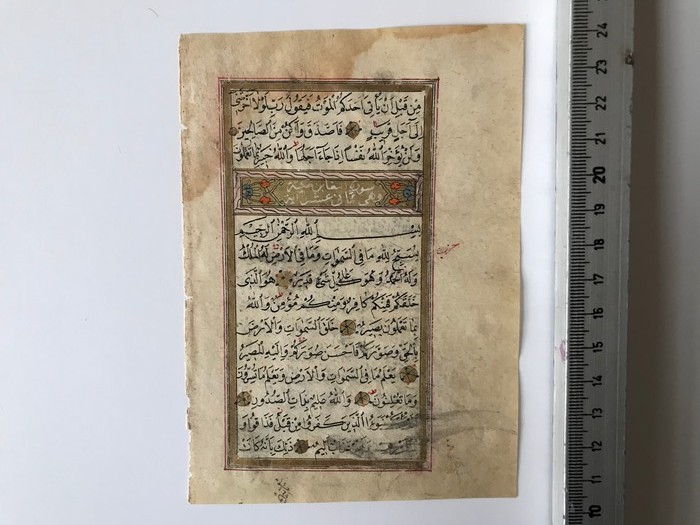 مِنْ قَبْلِ أَنْ يَأْتِيَ أَحَدَكُمُ الْمَوْتُ فَيَقُولَ رَبِّ لَوْلَا أَخَّرْتَنِي
إِلَى أَجَلٍ قَرِيبٍ فَأَصَّدَّقَ وَأَكُنْ مِنَ الصَّالِحِينَ
وَلَنْ يُؤَخِّرَ اللَّهُ نَفْسًا إِذَا جَاءَ أَجَلُهَا وَاللَّهُ خَبِيرٌ بِمَا تَعْمَلُونَ
سورة التغابن مدنية
وهي ثماني عشر آية
بِسْمِ اللَّهِ الرَّحْمٰنِ الرَّحِيمِ
يُسَبِّحُ لِلَّهِ مَا فِي السَّمٰوَاتِ وَمَا فِي الْأَرْضِ لَهُ الْمُلْكُ
وَلَهُ الْحَمْدُ وَهُوَ عَلَى كُلِّ شَيْءٍ قَدِيرٌ هُوَ الَّذِي
خَلَقَكُمْ فَمِنْكُمْ كَافِرٌ وَمِنْكُمْ مُؤْمِنٌ وَاللَّهُ
بِمَا تَعْمَلُونَ بَصِيرٌ خَلَقَ السَّمٰوَاتِ وَالْأَرْضَ
بِالْحَقِّ وَصَوَّرَكُمْ فَأَحْسَنَ صُوَرَكُمْ وَإِلَيْهِ الْمَصِيرُ
يَعْلَمُ مَا فِي السَّمٰوَاتِ وَالْأَرْضِ وَيَعْلَمُ مَا تُسِرُّونَ
وَمَا تُعْلِنُونَ وَاللَّهُ عَلِيمٌ بِذَاتِ الصُّدُورِ
نَبَؤُا الَّذِينَ كَفَرُوا مِنْ قَبْلُ فَذَاقُوا وَ
عَذَابٌ أَلِيمٌ ذٰلِكَ بِأَنَّهُ كَانَتْ
24
23
22
21
20
19
18
17
16
15
14
13
12
11
10